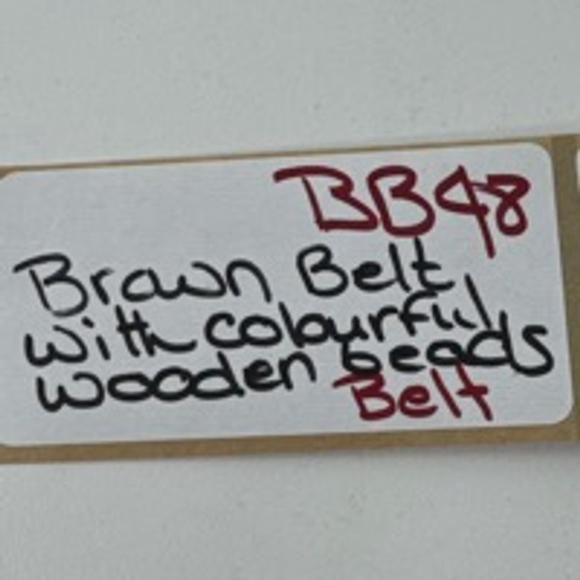 BB48
Brown Belt
with colourful
wooden beads
Belt